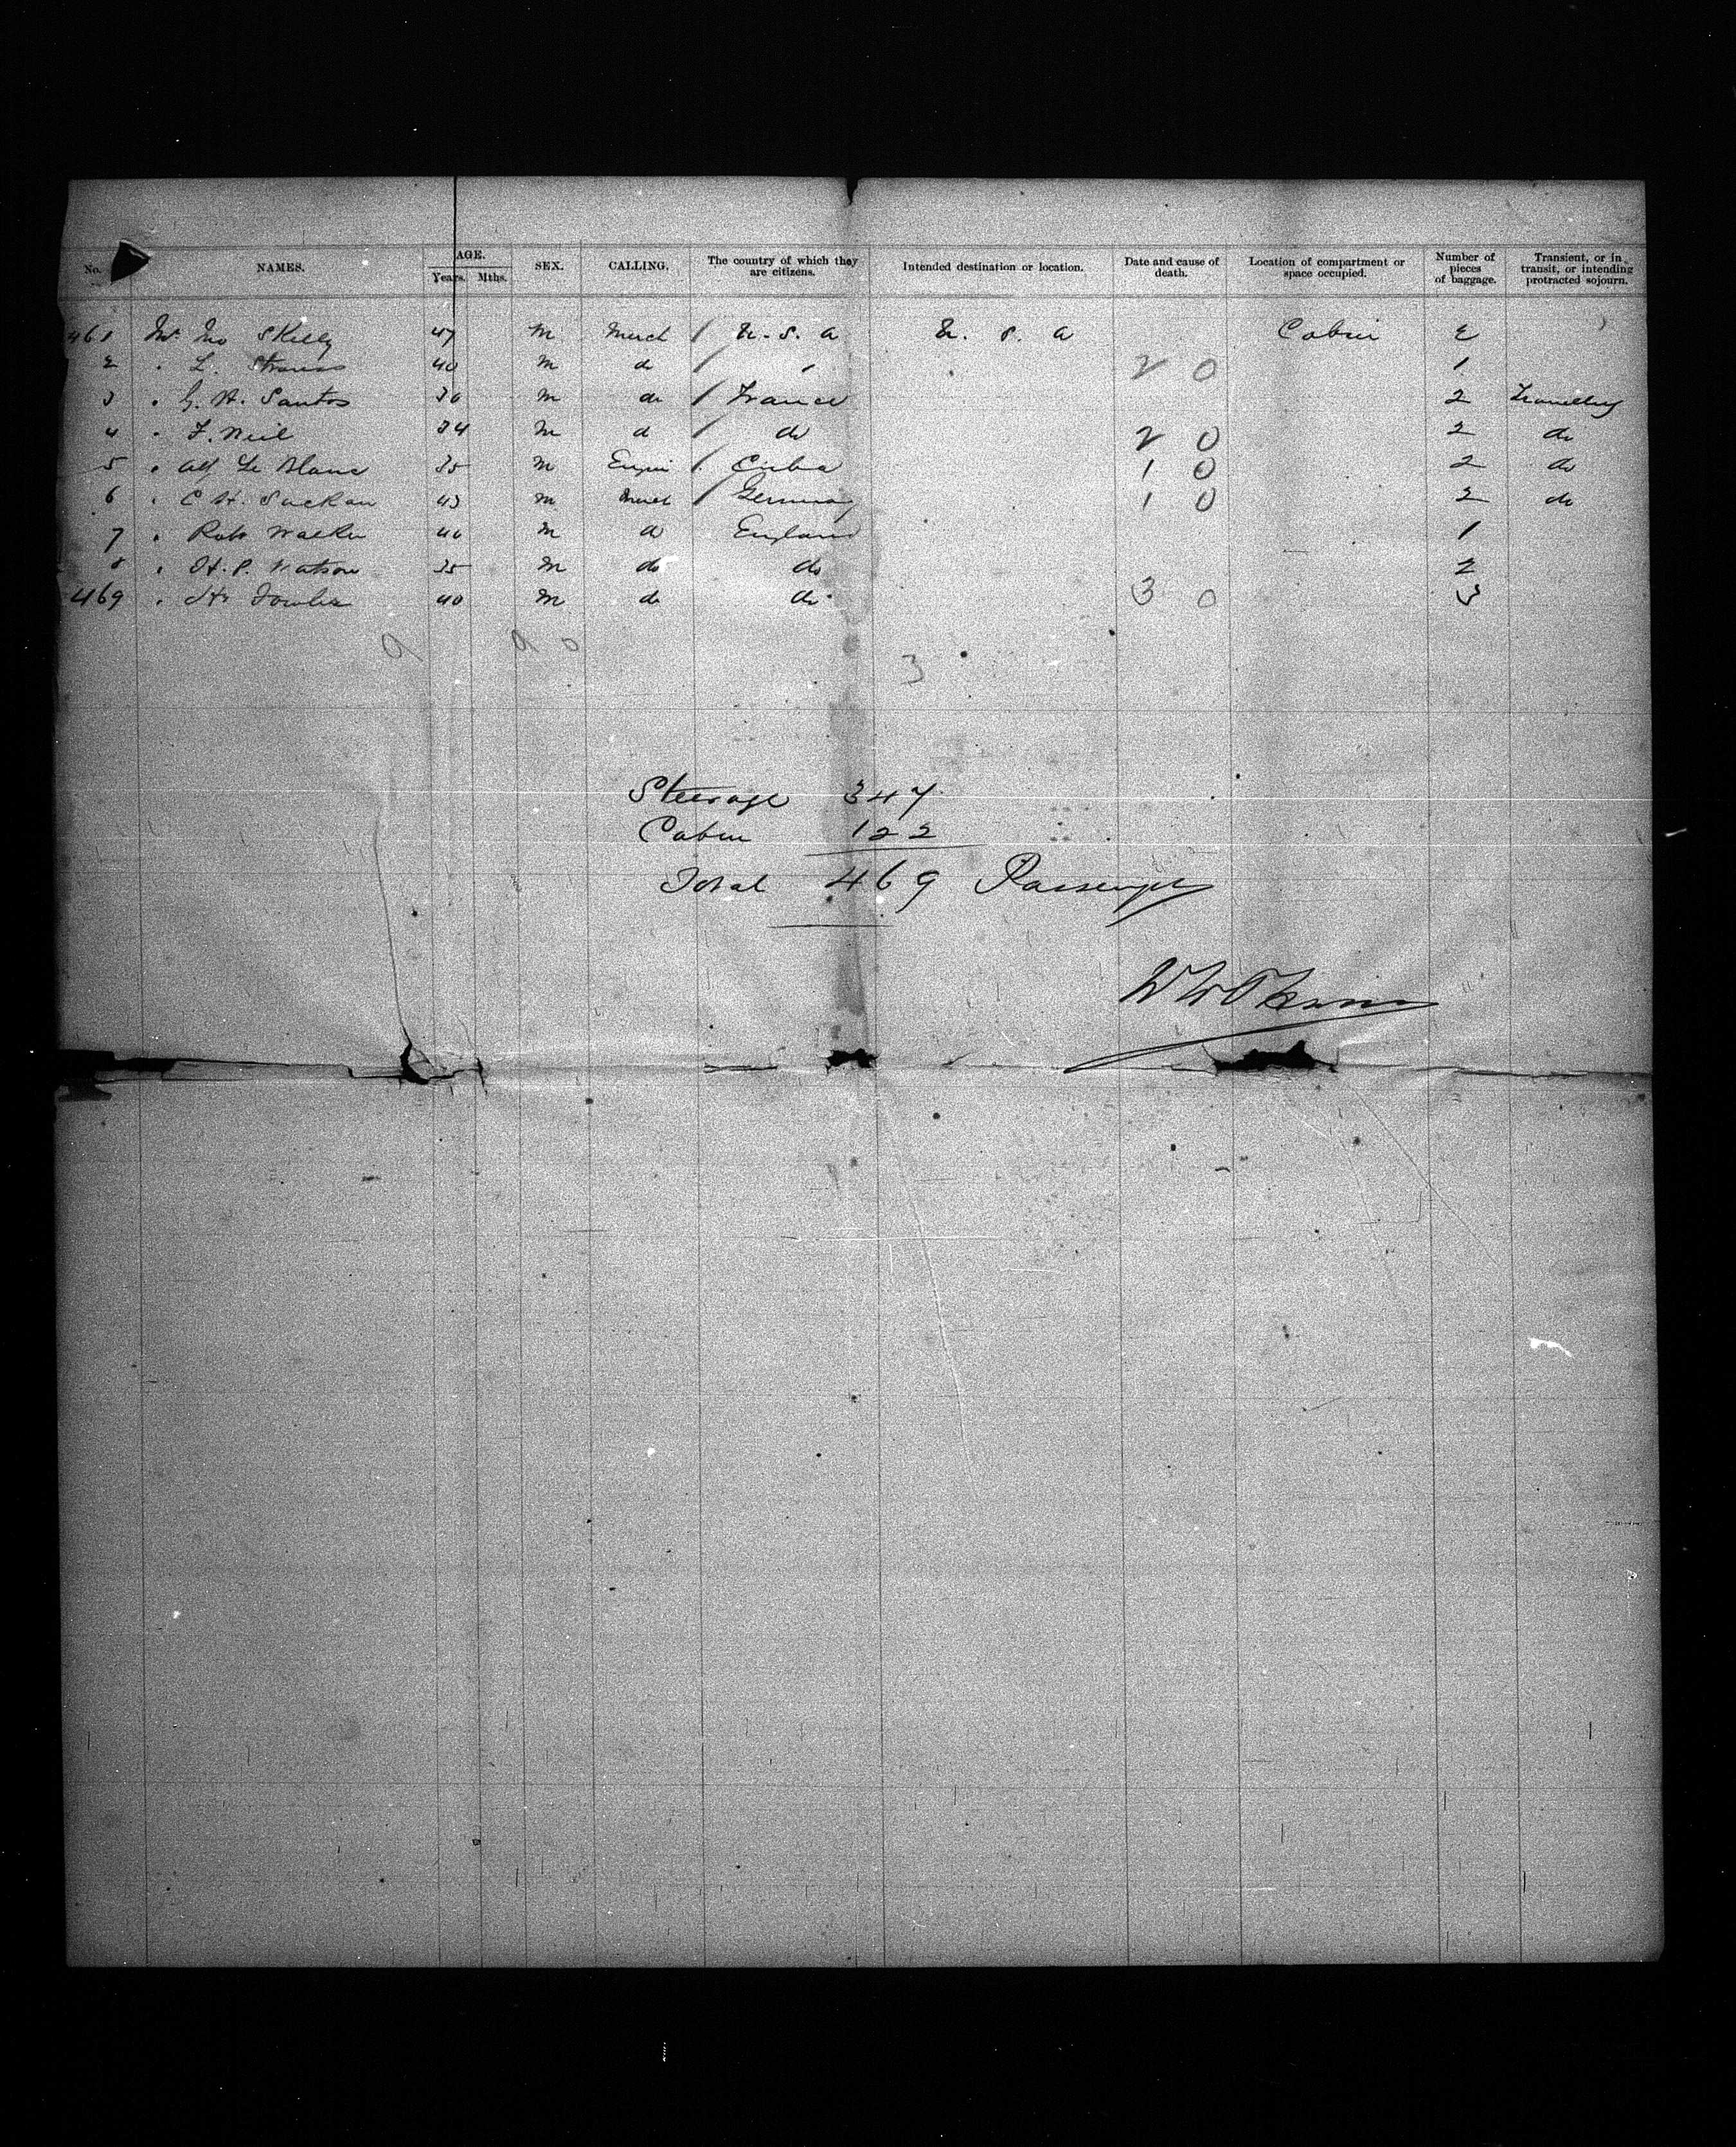 No. NAMES. AGE. Years. Mths. SEX. CALLING. The country of which they are citizens. Intended destination or location. Date and cause of death. Location of compartment or space occupied. Number of pieces of baggage. Transient, or in transit, or intending protracted sojourn.
461 Mr Jno Skelly 47 M Merch / U. S. A U. S. A Cabin 2
2 " L. Strauss 40 M do / " 2 0 1
3 " G. H. Santos 30 M do / France 2 Travelling
4 " F. Neil 34 M d / do 2 0 2 do
5 " Alf Le Blanc 35 M Engin / Cuba 1 0 2 do
6 " C H. 43 M Merch / Germany 1 0 2 do
7 " Robt Walker 40 M do England 1
8 " H. P. Watson 35 M do do 2
469 " Hy Fowler 40 M do do 3 0 3
9 9 0 3
Steerage 347
Cabin 122
Total 469 Passengers